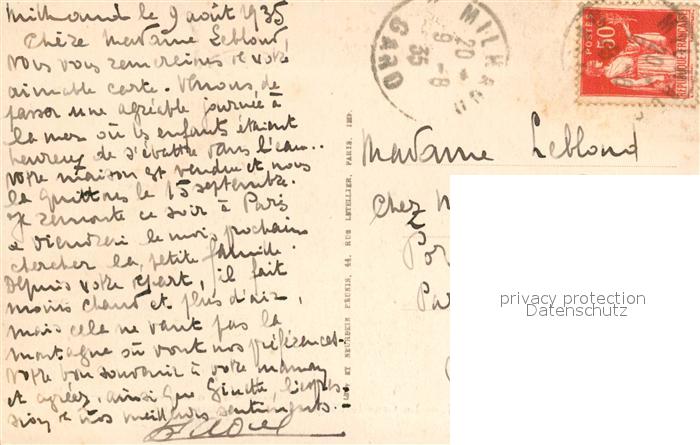 Milhaud le 9 août 1935
Chère Madame Leblond,
Nous vous remercions de votre
aimable carte. Venons de
passer une agréable journée à
la mer où les enfants étaient
heureux de s'ébattre dans l'eau..
Notre maison est vendue et nous
la quittons le 15 septembre.
Je remonte ce soir à Paris
et viendrai le mois prochain
chercher la petite famille.
Depuis votre départ, il fait
moins chaud et plus d'air,
mais cela ne vaut pas la
montagne où vont nos préférences.
Notre bon souvenir à votre maman
et agréez, ainsi que Ginette, l'expres-
sion de nos meilleurs sentiments.
LÉVY ET NEURDEIN RÉUNIS, 44, RUE LETELLIER, PARIS, IMP.
MILHAUD
20 *
9 -8
35
GARD
POSTES
50c
RÉPUBLIQUE FRANÇAISE
Madame Leblond
Chez M
Por
Pa
privacy protection
Datenschutz